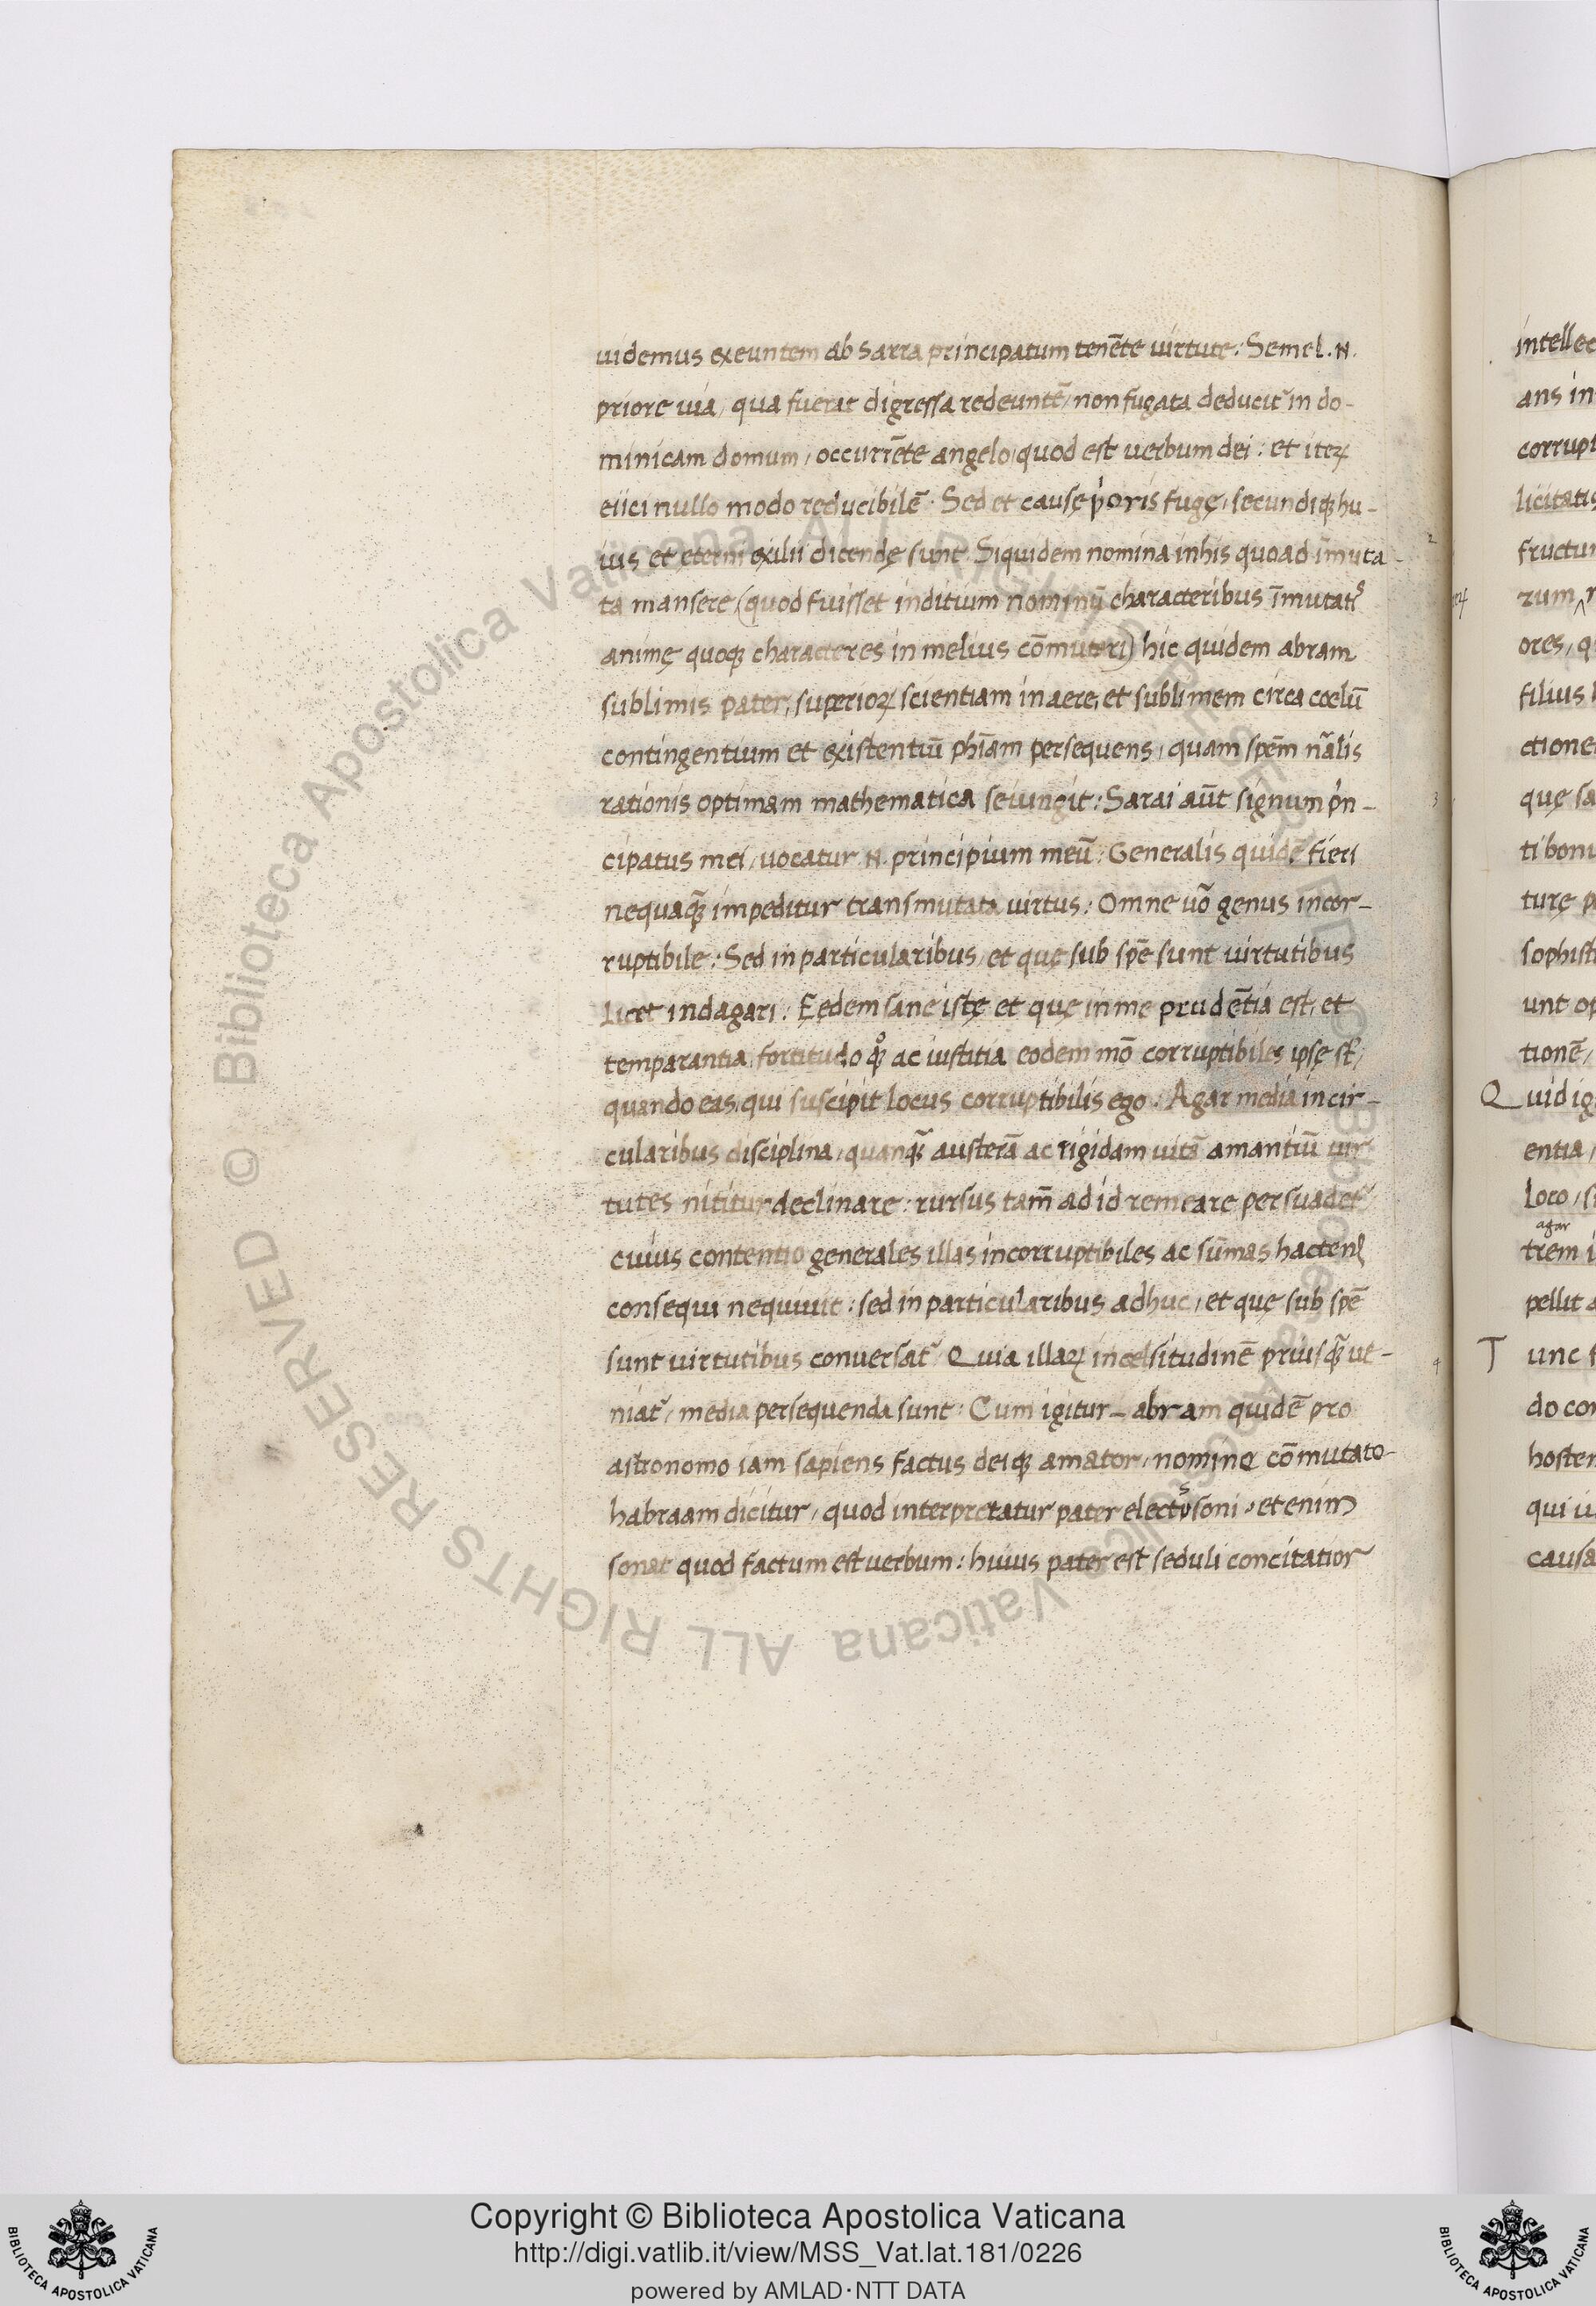 uidemus exeuntem ab Sarra principatum tenēte uirtute: Semel .N.
priore uia, qua fuerat digressa redeuntē, non fugata deducit᷒ in do-
minicam domum, occurrēte angelo, quod est uerbum dei: et iteꝝ
eiici nullo modo reducibilē. Sed et causę p̓oris fugę, secundiqꝫ hu-
ius et ęterni exilii dicendę sunt. Siquidem nomina in his quoad īmuta-
ta mansere (quod fuisset inditium nominū characteribus īmutat᷒
animę quoqꝫ characteres in melius cōmutari) hic quidem abram
sublimis pater, superioꝝ scientiam in aere, et sublimem circa coelū
contingentium et existentiū phīam persequens, quam spēm nālis
rationis optimam mathematica seiungit: Sarai aūt signum p̓n-
cipatus mei, uocatur .N. principium meū: Generalis quidē fieri
nequaq̄ꝫ impeditur transmutata uirtus: Omne uō genus incor-
ruptibile: Sed in particularibus, et quę sub spē sunt uirtutibus
Licet indagari: Eędem sane istę et quę in me prudētia est, et
temparantia, fortitudo qꝫ° ac iustitia eodem mō corruptibiles ipsę sť,
quando eas, qui suscipit locus corruptibilis ego: Agar media in cir-
cularibus disciplina, quanq̄ꝫ austerā ac rigidam uitā amantiū uir
tutes nititur declinare: rursus tam̄ ad id remeare persuadet᷒
cuius contentio generales illas incorruptibiles ac sūmas hacten᷒
consequi nequiuit: sed in particularibus adhuc, et quę sub spē
sunt uirtutibus conuersat᷒ Quia illaꝝ in celsitudinē priusq̄ꝫ ue-
niat᷒, media persequenda sunt: Cum igitur abram quidē pro
astronomo iam sapiens factus deiqꝫ amator, nomine cōmutato-
habraam dicitur, quod interpretatur pater electus soni, etenim
sonat quod factum est uerbum: huius pater est seduli concitatior
2
3
4
intellec
ans in
corrupt
licitatis
fructu
rum
ores, q
filius
ctione
quę sa
ti bon
turę p
sophist
unt op
tionē,
Quid ig
entia,
Loco, s
agar
trem i
pellit a
Tunc
do con
hoste
qui
causa
© Biblioteca Apostolica Vaticana ALL RIGHTS RESERVED © Biblioteca Apostolica Vaticana ALL RIGHTS RESERVED
Copyright © Biblioteca Apostolica Vaticana
http://digi.vatlib.it/view/MSS_Vat.lat.181/0226
powered by AMLAD·NTT DATA
BIBLIOTECA APOSTOLICA VATICANA
BIBLIOTECA APOSTOLICA VATICANA